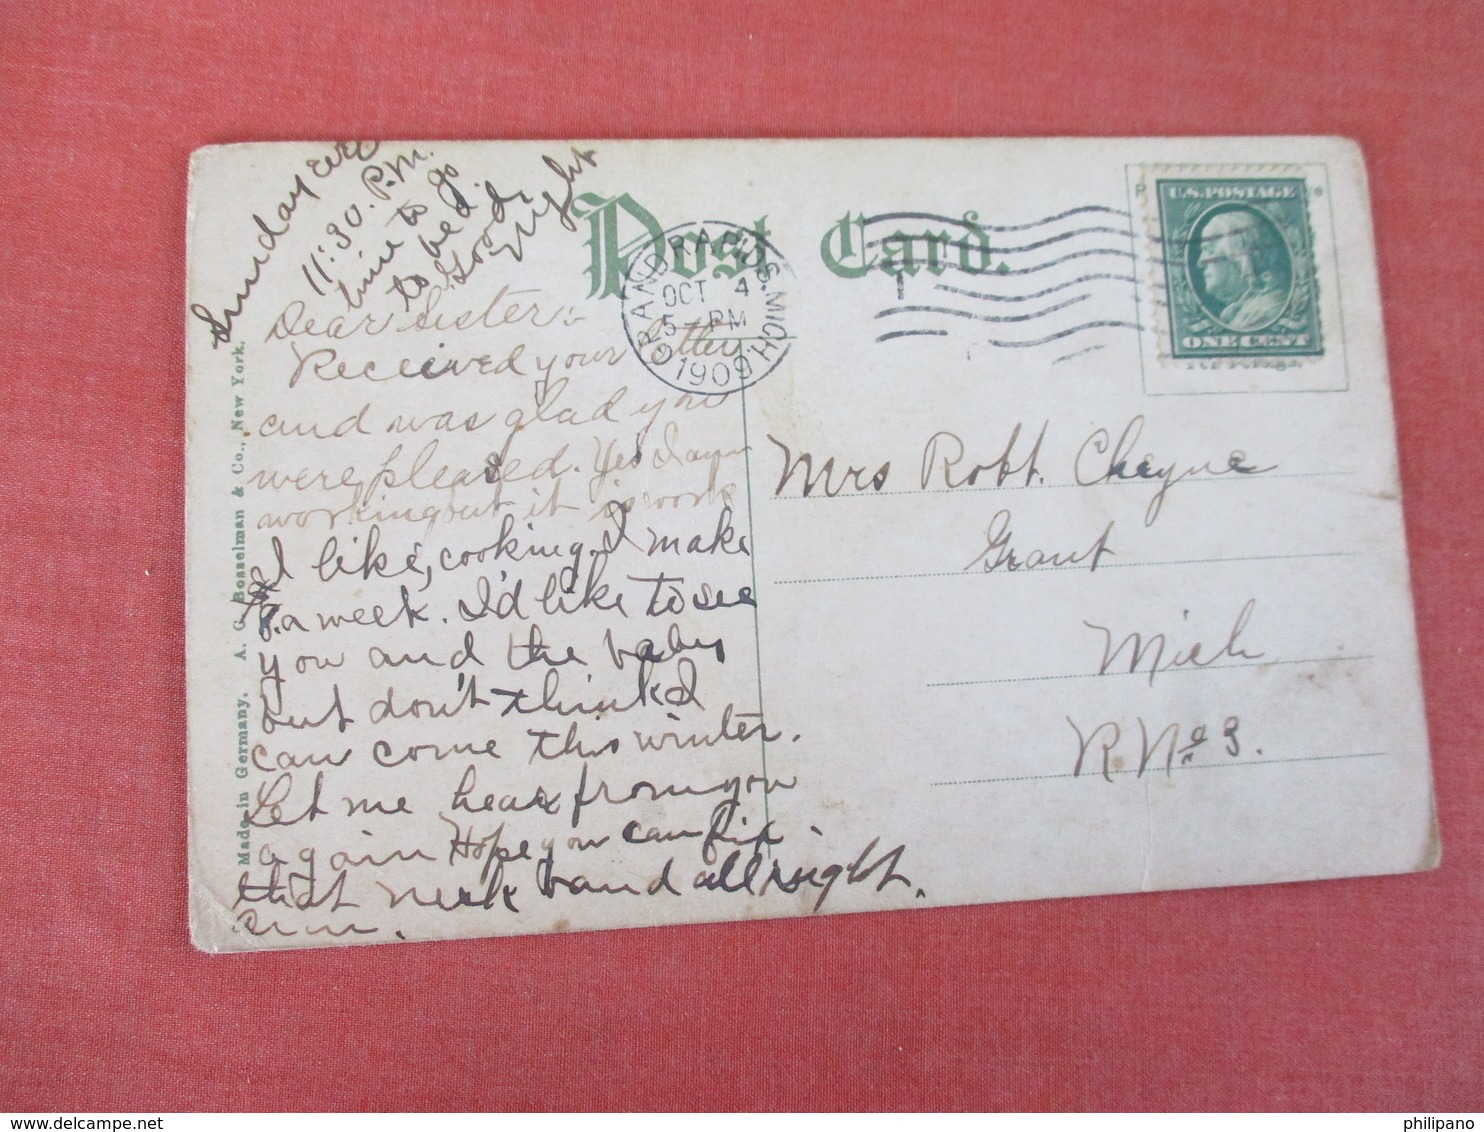 Sunday Eve
11:30. P.M.
time to go
to bed.
Good
Night
Post Card.
GRAND RAPIDS. MICH.
OCT 4
5 - PM
1909
U.S. POSTAGE
ONE CENT
Dear Sister:-
Received your letter
and was glad you
were pleased. Yes I am
working out it is work
I like, cooking. I make
a week. I'd like to see
you and the baby
but don't think I
can come this winter.
Let me hear from you
again Hope you can fix
that neck band all right.
Mrs Robt. Cheyne
Grant
Mich
R. No 3.
Made in Germany. A. C. Bosselman & Co., New York.
philipano